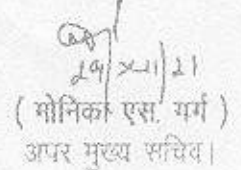 29/XII/21
( मोनिका एस. गर्ग )
अपर मुख्य सचिव।